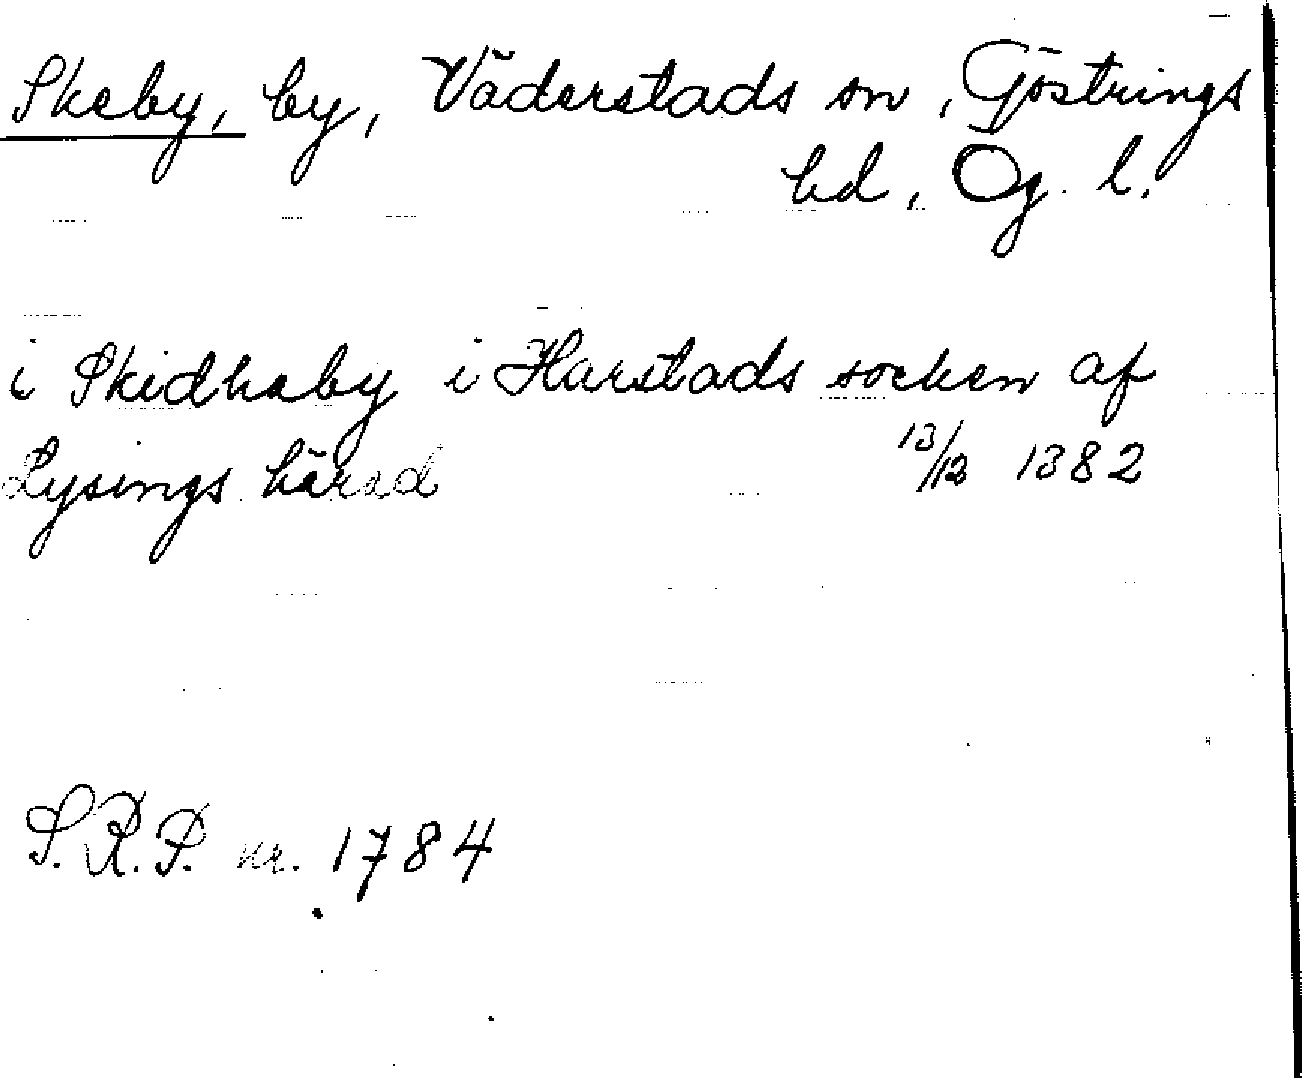 Skeby, by, Väderstads sn, Göstrings
hd, Ög. l.
i Skidhaby i Harstads socken af
Lysings härad 13/12 1382
S.R.P. nr. 1784